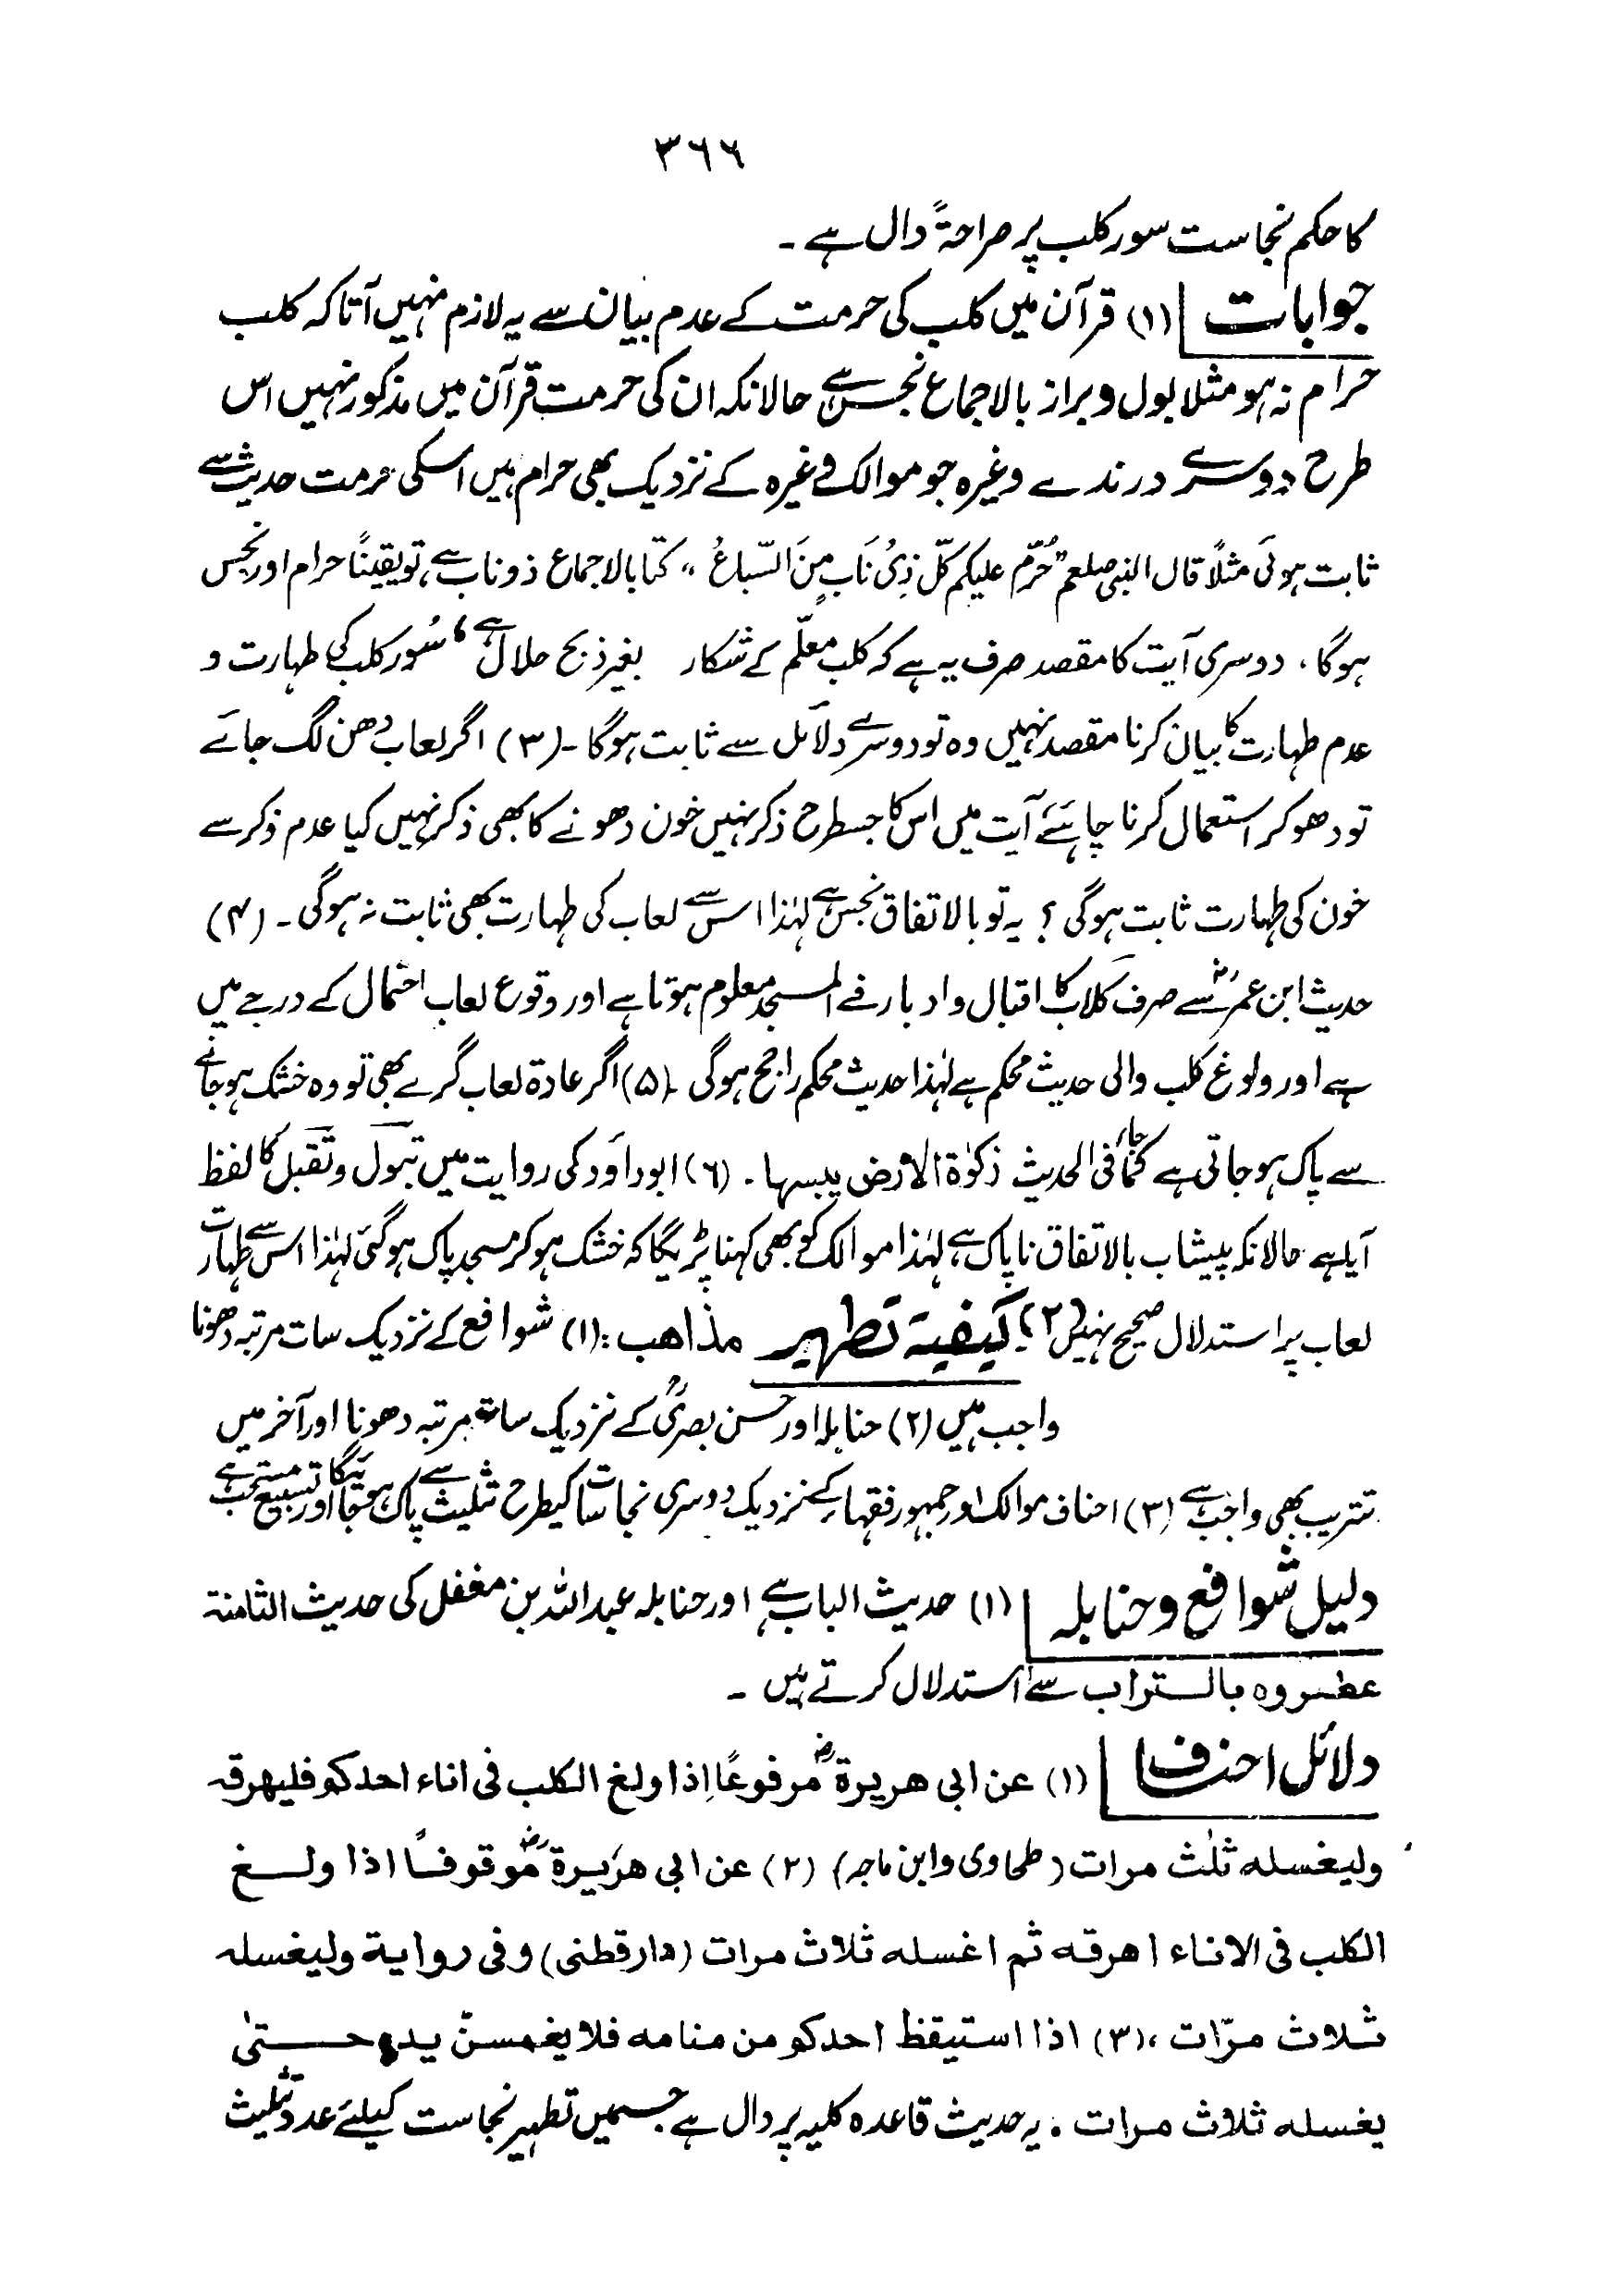 ۳۶۶
کا حکم نجاست سور کلب پر صراحۃً دال ہے ۔
جوابات (۱) قرآن میں کلب کی حرمت کے عدم بیان سے یہ لازم نہیں آتا کہ کلب
حرام نہ ہو مثلا بول و براز بالاجماع نجس ہے حالانکہ ان کی حرمت قرآن میں مذکور نہیں اس
طرح دوسرے درندے وغیرہ جو موالک وغیرہ کے نزدیک بھی حرام ہیں اسکی حرمت حدیث سے
ثابت ہوئی مثلًا قال النبی صلعم "حُرّم علیکم کلّ ذِیْ نَابٍ مِنَ السّباعْ " کتا بالاجماع ذوناب ہے، تو یقینًا حرام اور نجس
ہوگا ، دوسری آیت کا مقصد صرف یہ ہے کہ کلب معلّم کے شکار بغیر ذبح حلال ہے ، سُور کلب کی طہارت و
عدم طہارت کا بیان کرنا مقصد نہیں وہ تو دوسرے دلائل سے ثابت ہوگا ۔(۳) اگر لعاب دھن لگ جائے
تو دھو کر استعمال کرنا چاہئے آیت میں اس کا جسطرح ذکر نہیں خون دھونے کا بھی ذکر نہیں کیا عدم ذکر سے
خون کی طہارت ثابت ہوگی ؟ یہ تو بالاتفاق نجس ہے لہٰذا اس سے لعاب کی طہارت بھی ثابت نہ ہوگی ۔ (۴)
حدیث ابن عمرؓ سے صرف کلاب کا اقبال و ادبار فے المسجد معلوم ہوتا ہے اور وقوع لعاب احتمال کے درجے میں
ہے اور ولوغ کلب والی حدیث محکم ہے لہٰذا حدیث محکم راجح ہوگی ۔(۵) اگر عادۃ لعاب گرے بھی تو وہ خشک ہو جانے
سے پاک ہو جاتی ہے کما جاء فی الحدیث ذکوٰۃ الارض یبسہا ۔ (۶) ابوداؤد کی روایت میں تبول و تقبل کا لفظ
آیا ہے حالانکہ پیشاب بالاتفاق ناپاک ہے، لہٰذا موالک کو بھی کہنا پڑیگا کہ خشک ہو کر مسجد پاک ہوگئی لہٰذا اس سے طہارت
لعاب پر استدلال صحیح نہیں (۲) کیفیۃ تطہیر مذاھب : (۱) شوافع کے نزدیک سات مرتبہ دھونا
واجب ہیں (۲) حنابلہ اور حسن بصریؒ کے نزدیک سات مرتبہ دھونا اور آخر میں
تتریب بھی واجب ہے (۳) احناف موالک اور جمہور فقہاء کے نزدیک دوسری نجاسات کیطرح تثلیث سے پاک ہو جائیگا اور تسبیع مستحب ہے
دلیل شوافع و حنابلہ (۱) حدیث الباب ہے، اور حنابلہ عبداللہ بن مغفل کی حدیث الثامنۃ
عطروہ بالتراب سے استدلال کرتے ہیں ۔
دلائل احناف (۱) عن ابی ھریرۃؓ مرفوعًا اِذا ولغ الکلب فی اناء احدکم فلیھرقہ
ولیغسلہ ثلٰث مرات (طحاوی وابن ماجہ) (۲) عن ابی ھرَیرۃؓ موقوفًا اذا ولغ
الکلب فی الاناء اھرقہ ثم اغسلہ ثلاث مرات (دارقطنی) وفی روایۃ ولیغسلہ
ثلاث مرّات ،(۳) اذا استیقظ احدکم من منامہ فلا یغمسنّ یدہ حتیٰ
یغسلہ ثلاث مرات . یہ حدیث قاعدہ کلیہ پر دال ہے جسمیں تطہیر نجاست کیلئے عدد تثلیث